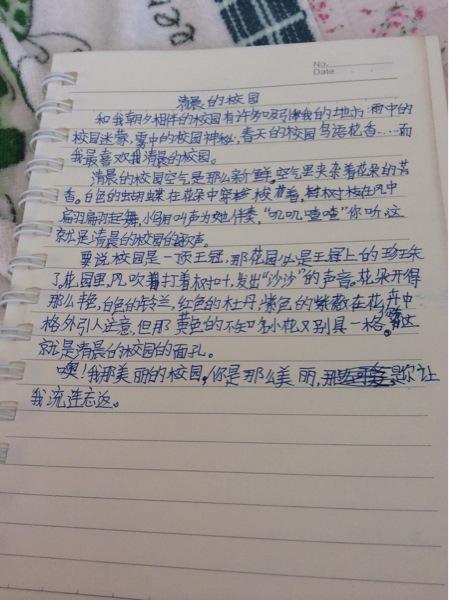 No.
Date
清晨的校园
和我朝夕相伴的校园有许多吸引我的地方:雨中的
校园迷蒙,雾中的校园神秘,春天的校园鸟语花香……而
我最喜欢我清晨的校园。
清晨的校园空气是那么新鲜,空气里夹杂着花朵的芳
香。白色的蝴蝶在花朵中穿梭着,树枝在风中
扇羽扇羽起舞,小鸟叫声为她伴奏,“叽叽喳喳”你听,这
就是清晨的校园的歌声。
要说校园是一顶王冠,那花园必是王冠上的珍珠
了,花园里,风吹着打着树叶,发出“沙沙”的声音。花朵开得
那么艳,白色的铃兰,红色的牡丹,紫色的紫薇在花丛中
格外引人注意,但那黄色的不知名小花又别具一格。这
就是清晨的校园的面孔。
噢!我那美丽的校园,你是那么美丽,是你让
我流连忘返。